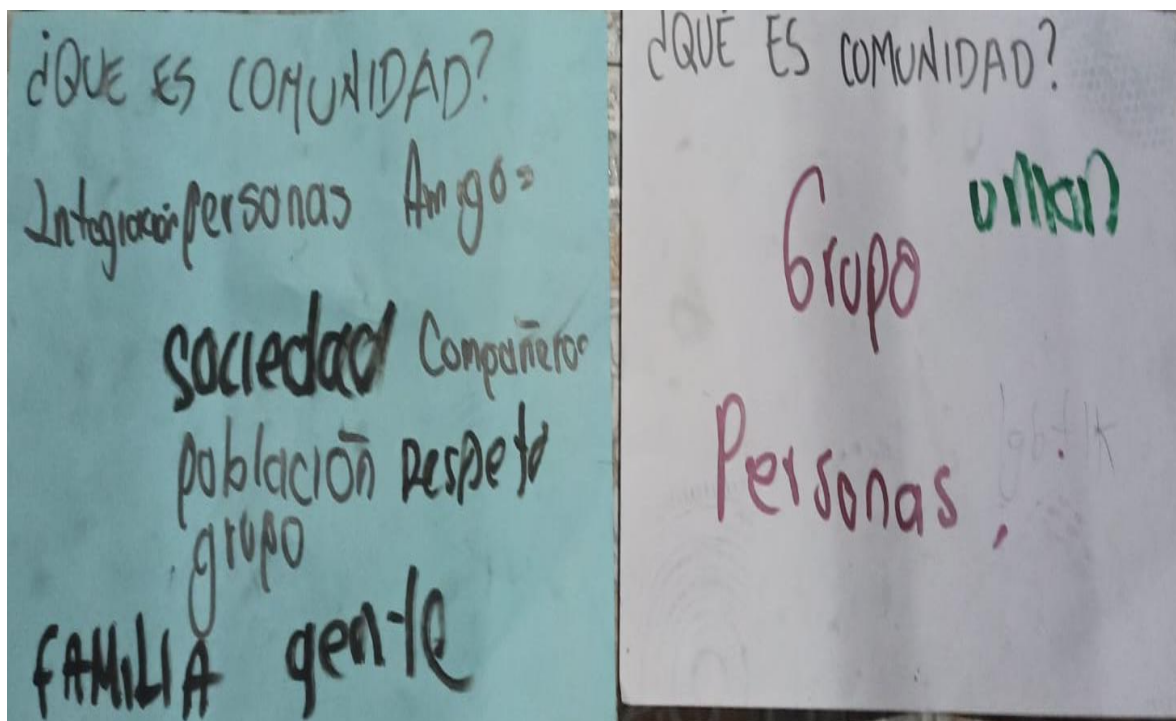 ¿QUE ES COMUNIDAD?
Integración personas Amigos
sociedad Compañeros
población Respeto
grupo
FAMILIA gente
¿QUÉ ES COMUNIDAD?
union
Grupo
Personas,